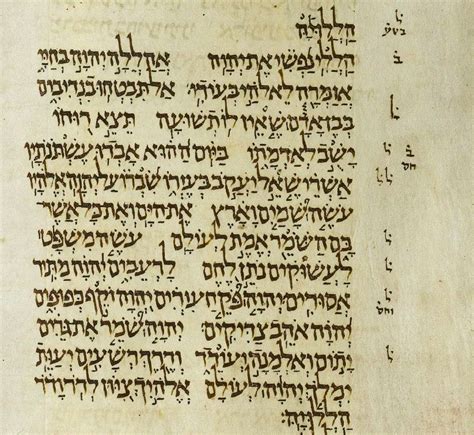 הללויה
הללי נפשי את יהוה אהללה יהוה בחיי
אזמרה לאלהי בעודי אל תבטחו בנדיבים
בבן אדם שאין לו תשועה תצא רוחו
ישב לאדמתו ביום ההוא אבדו עשתנתיו
אשרי שאל יעקב בעזרו שברו על יהוה אלהיו
עשה שמים וארץ את הים ואת כל אשר
בם השמר אמת לעולם עשה משפט
לעשוקים נתן לחם לרעבים יהוה מתיר
אסורים יהוה פקח עורים יהוה זקף כפופים
יהוה אהב צדיקים יהוה שמר את גרים
יתום ואלמנה יעודד ודרך רשעים יעות
ימלך יהוה לעולם אלהיך ציון לדר ודר
הללויה׃